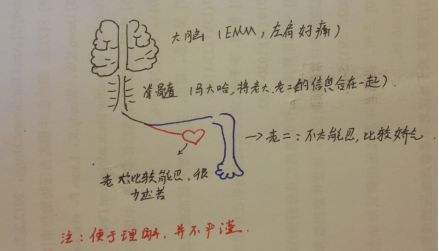 大脑（EMM，左肩好痛）
脊髓（马大哈，将老大、老二的信息合在一起）
老二：不太能忍，比较娇气
老大：比较能忍，很
注：便于理解，并不严谨.